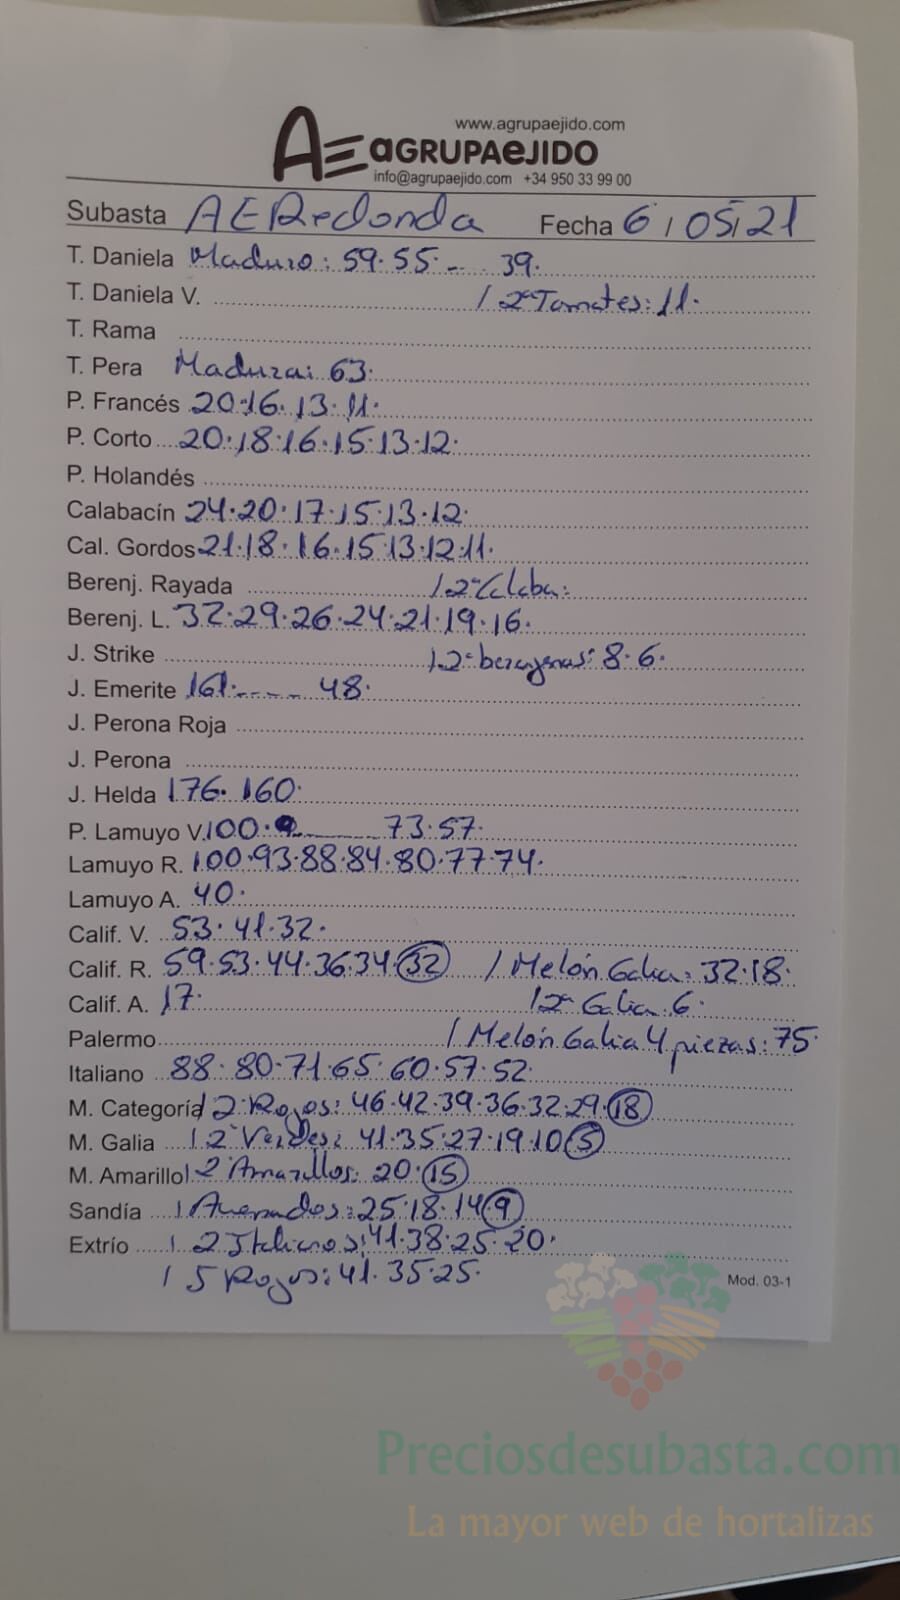 www.agrupaejido.com
AE aGRUPAeJIDO
info@agrupaejido.com +34 950 33 99 00
Subasta AERedonda Fecha 6/05/21
T. Daniela Maduro: 59.55. - . 39.
T. Daniela V. / 2ª Tomates: 11.
T. Rama
T. Pera Madura: 63.
P. Francés 20.16.13.11.
P. Corto 20.18.16.15.13.12.
P. Holandés
Calabacín 24.20.17.15.13.12.
Cal. Gordos 21.18.16.15.13.12.11.
Berenj. Rayada / 2ª Calaba:
Berenj. L. 32.29.26.24.21.19.16.
J. Strike / 2ª berenjenas: 8.6.
J. Emerite 161.---- 48.
J. Perona Roja
J. Perona
J. Helda 176.160.
P. Lamuyo V. 100. ---- 73.57.
Lamuyo R. 100.93.88.84.80.77.74.
Lamuyo A. 40.
Calif. V. 53.41.32.
Calif. R. 59.53.44.36.34.32 / Melón Galia: 32.18.
Calif. A. 17. / 2ª Galia 6.
Palermo / Melón Galia 4 piezas: 75.
Italiano 88.80.71.65.60.57.52.
M. Categoría / 2ª Rojos: 46.42.39.36.32.29.18
M. Galia / 2ª Verdes: 41.35.27.19.10.5
M. Amarillo / 2ª Amarillos: 20.15
Sandía / Asurados: 25.18.14.9
Extrío / 2 Italianos: 41.38.25.20.
/ 5 Rojos: 41.35.25.
Mod. 03-1
Preciosdesubasta.com
La mayor web de hortalizas